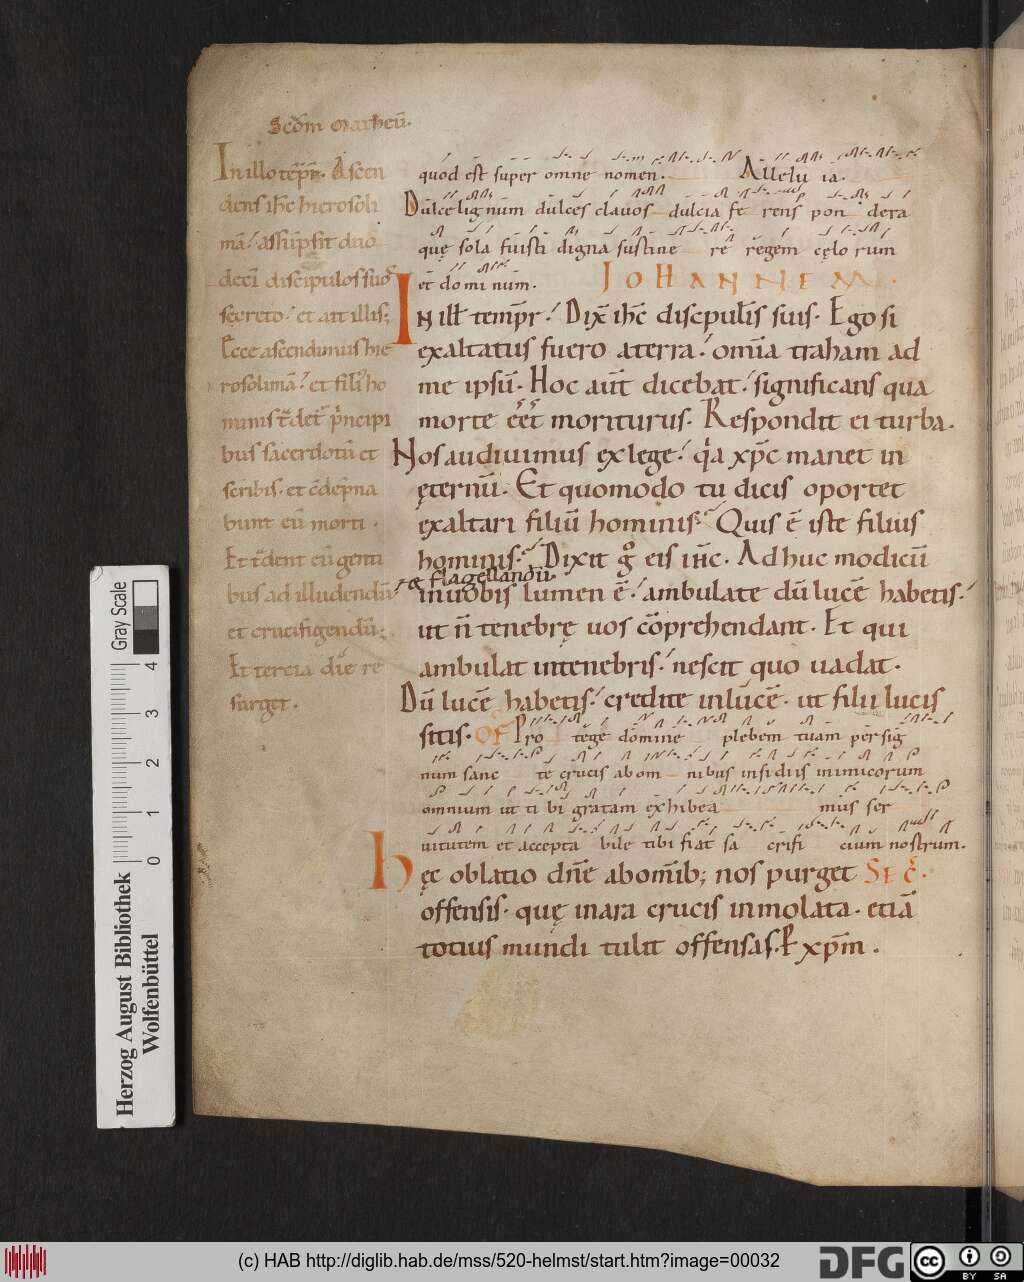 Scd̄m Matheū.
In illo tēpr̄. Ascen
dens ih̄c hierosoli
mā. assūpsit duo
deci discipulos suos
secreto. et ait illis;
Ecce ascendimus hie
rosolimā. et fili ho
minis t̄det p̄ncipi
bus sacerdotū et
scribis. et c̄depna
bunt eū morti.
Et t̄dent eū genti
bus ad illudendū
et crucifigendū;
Et tercia die re
surget.
et flagellandū.
quod est super omne nomen. Allelu ia.
Dulce lignum dulces clavos dulcia fe rens pon dera
quę sola fuisti digna sustine re regem cęlo rum
et do mi num. IOHANNEM.
In ill tempr. Dix̄ ih̄c discpulis suis. Ego si
exaltatus fuero aterra. omīa traham ad
me ipsū. Hoc aut dicebat. significans qua
morte eēt moriturus. Respondit ei turba.
Nos audiuimus ex lege. qa xp̄c manet in
ęternū. Et quomodo tu dicis oportet
exaltari filiū hominis. Quis ē iste filius
hominis. Dixit g̊ eis ih̄c. Adhuc modicū
in uobis lumen ē. ambulate dū lucē habetis.
ut n̄ tenebrę uos cōprehendant. Et qui
ambulat intenebris. nescit quo uadat.
Dū lucē habetis. credite inlucē. ut filii lucis
sitis. OF Pro tege domine plebem tuam per sig
num sanc te crucis ab om nibus insidiis inimicorum
omnium ut ti bi gratam exhibea mus ser
uitutem et accepta bile tibi fiat sa crifi cium nostrum.
Hęc oblatio dn̄e abomīb; nos purget SEC̄.
offensis. quę inara crucis inmolata. etiā
totius mundi tulit offensas. P xp̄m.
Gray Scale
4
3
2
1
0
Herzog August Bibliothek
Wolfenbüttel
(c) HAB http://diglib.hab.de/mss/520-helmst/start.htm?image=00032
DFG
cc BY SA